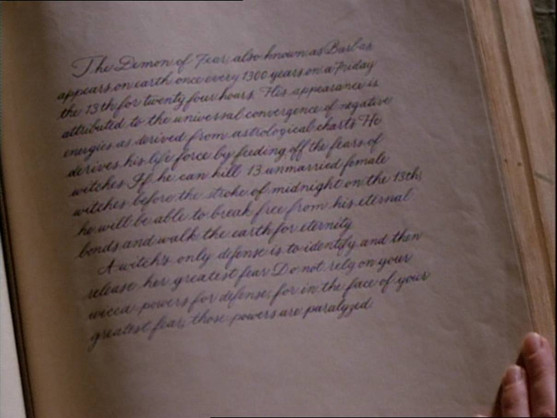 The Demon of Fear, also known as Barbas
appears on earth once every 1300 years on a Friday
the 13th for twenty four hours. His appearance is
attributed to the universal convergence of negative
energies as derived from astrological charts. He
derives his life force by feeding off the fears of
witches. If he can kill 13 unmarried female
witches before the stroke of midnight on the 13th,
he will be able to break free from his eternal
bonds and walk the earth for eternity.
A witch's only defense is to identify and then
release her greatest fear. Do not rely on your
wicca powers for defense; for in the face of your
greatest fear, those powers are paralyzed.